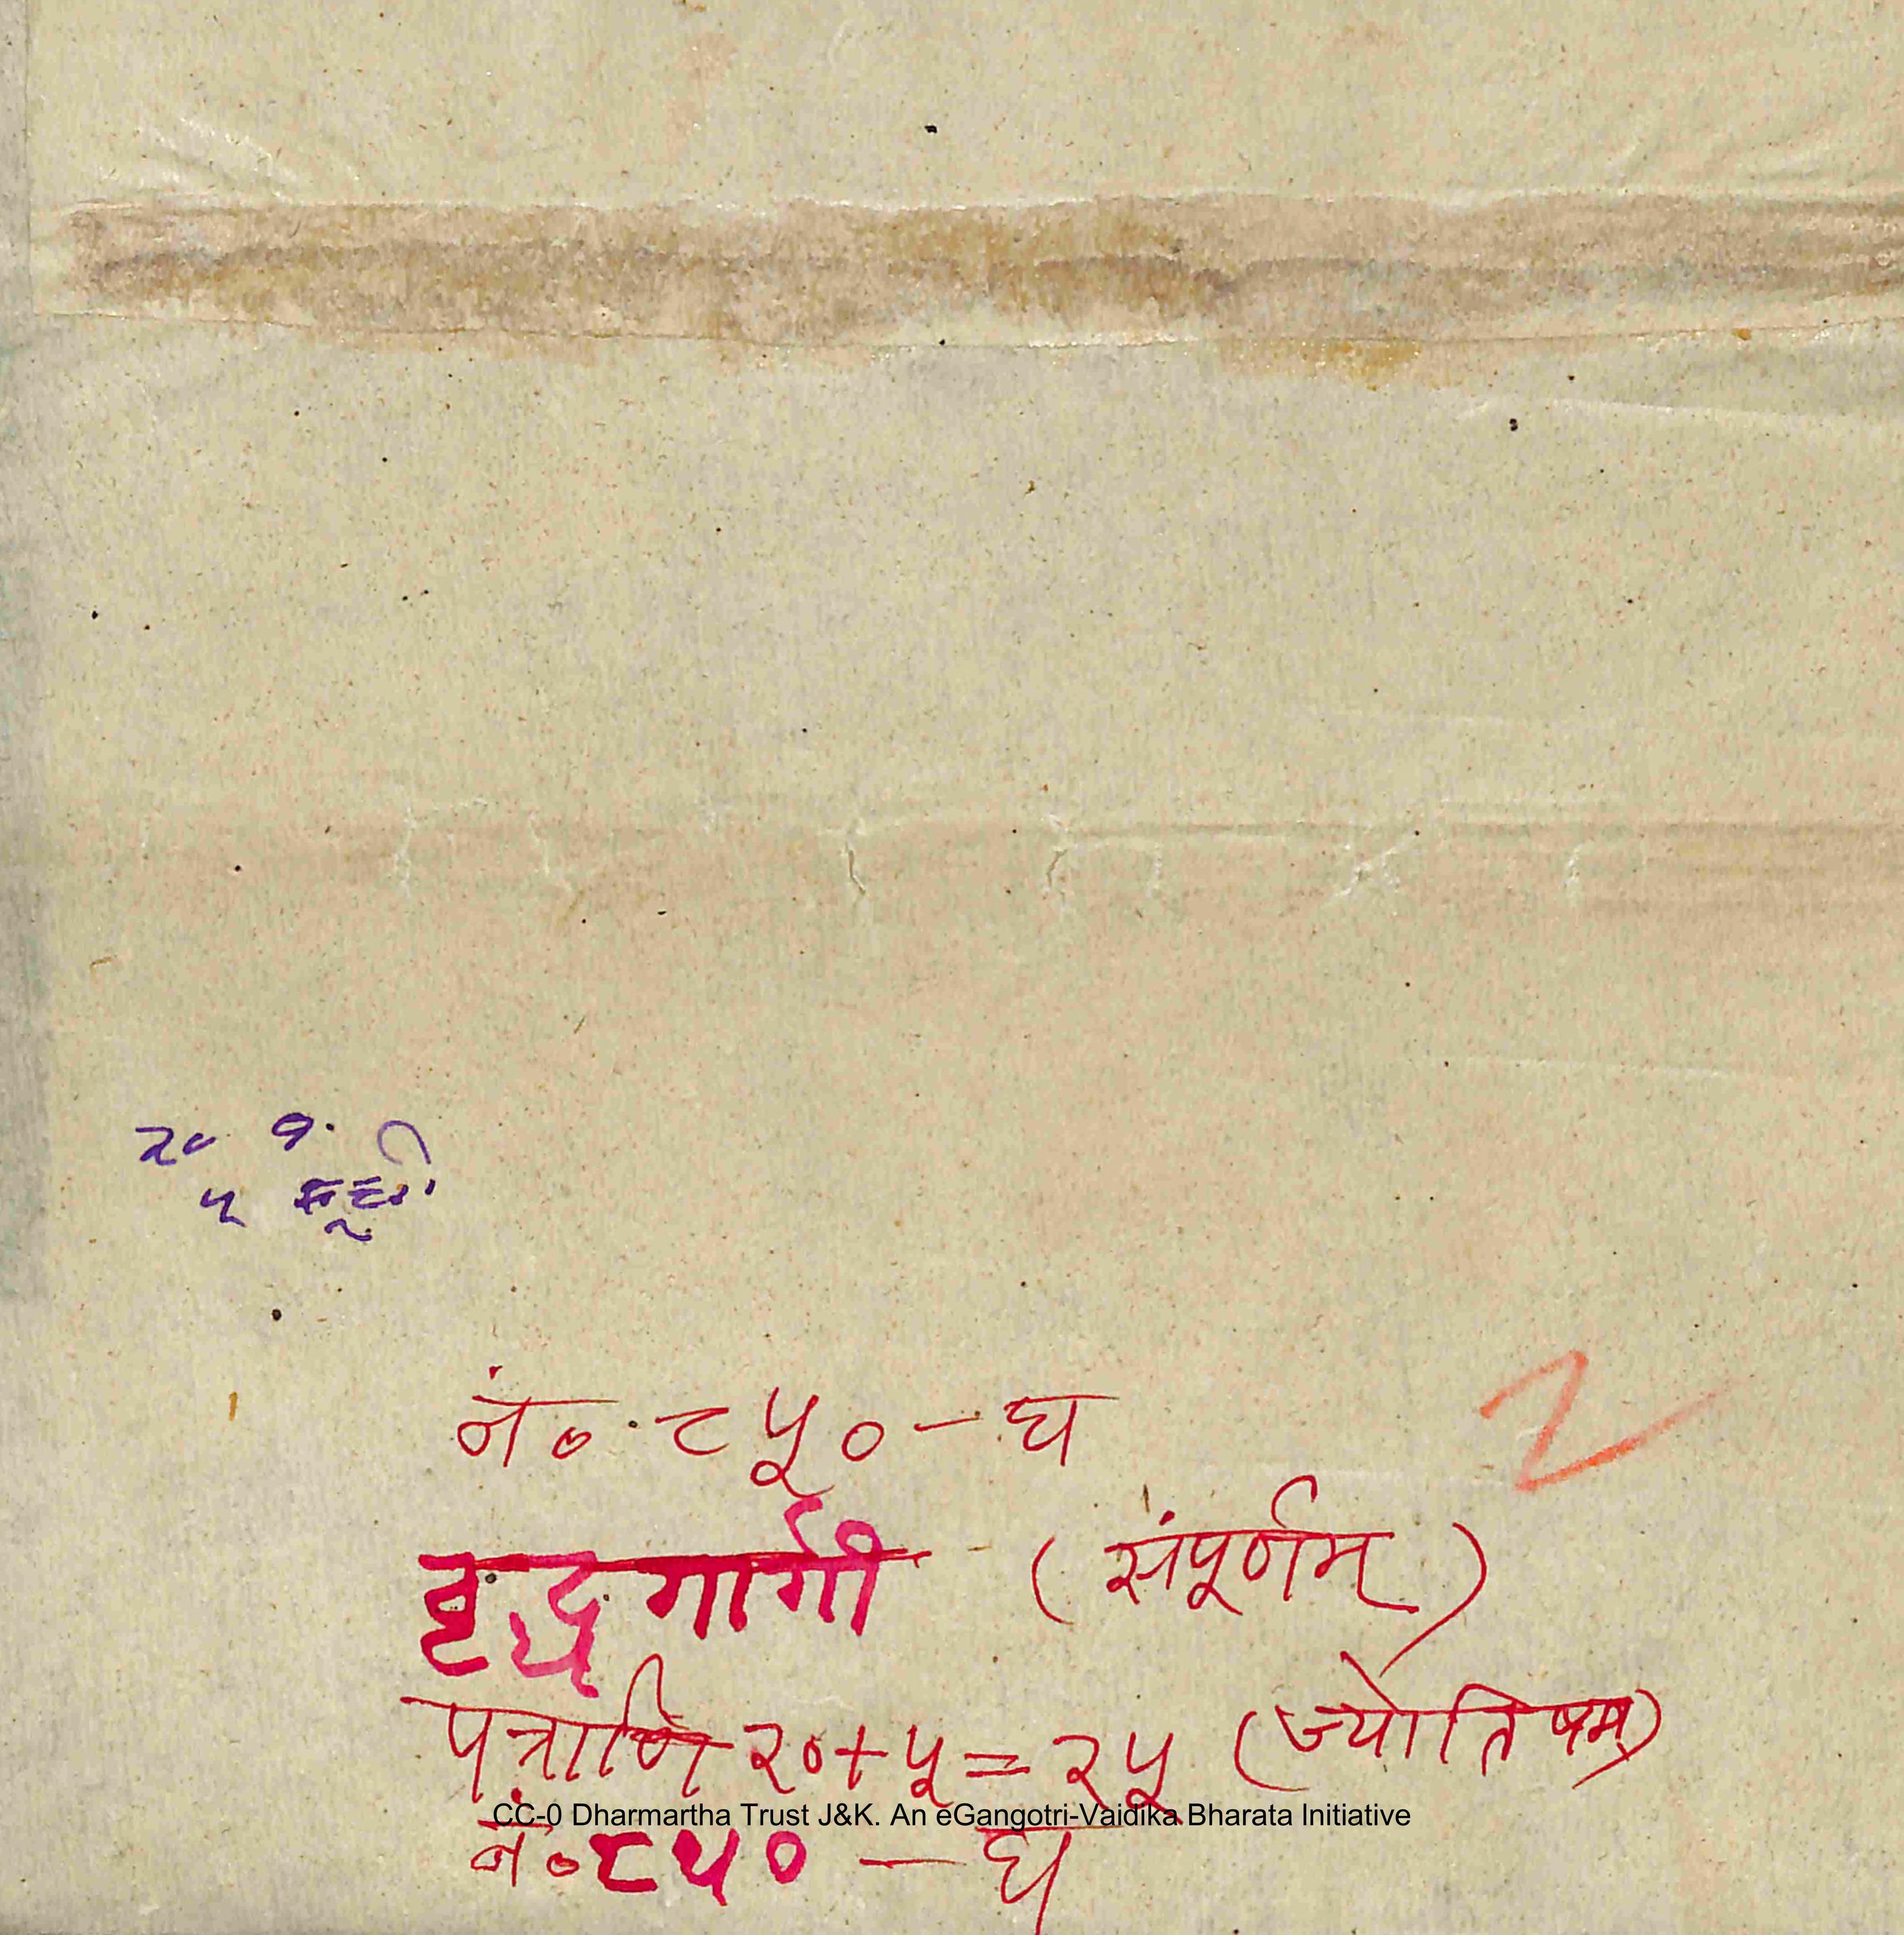 २० १.
५
नं० ८५० - घ
2
वृद्धगार्गी (संपूर्णम्)
पत्राणि २०+५=२५ (ज्योतिषम्)
CC-0 Dharmartha Trust J&K. An eGangotri-Vaidika Bharata Initiative
नं० ८५० - घ